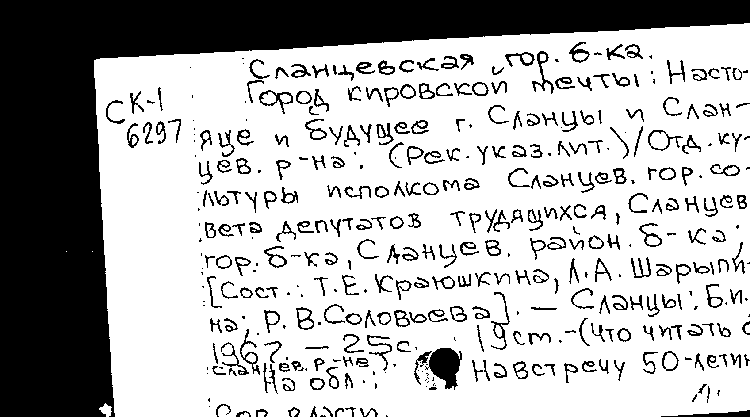 Сланцевская гор. б-ка.
СК-1
6297
Город кировской мечты: Насто-
яще и будущее г. Сланцы и Слан-
цев. р-на: (Рек. указ. лит.)/Отд. ку-
льтуры исполкома Сланцев. гор. со-
вета депутатов трудящихся, Сланцев
гор. б-ка, Сланцев. район. б-ка;
[Сост.: Т.Е. Краюшкина, Л.А. Шарыпи-
на; Р.В. Соловьева]. — Сланцы: Б.и.
1967. — 25с. 19см.-(Что читать о
сланцев. р-не).
На обл.: Навстречу 50-лети
Сов. власти.